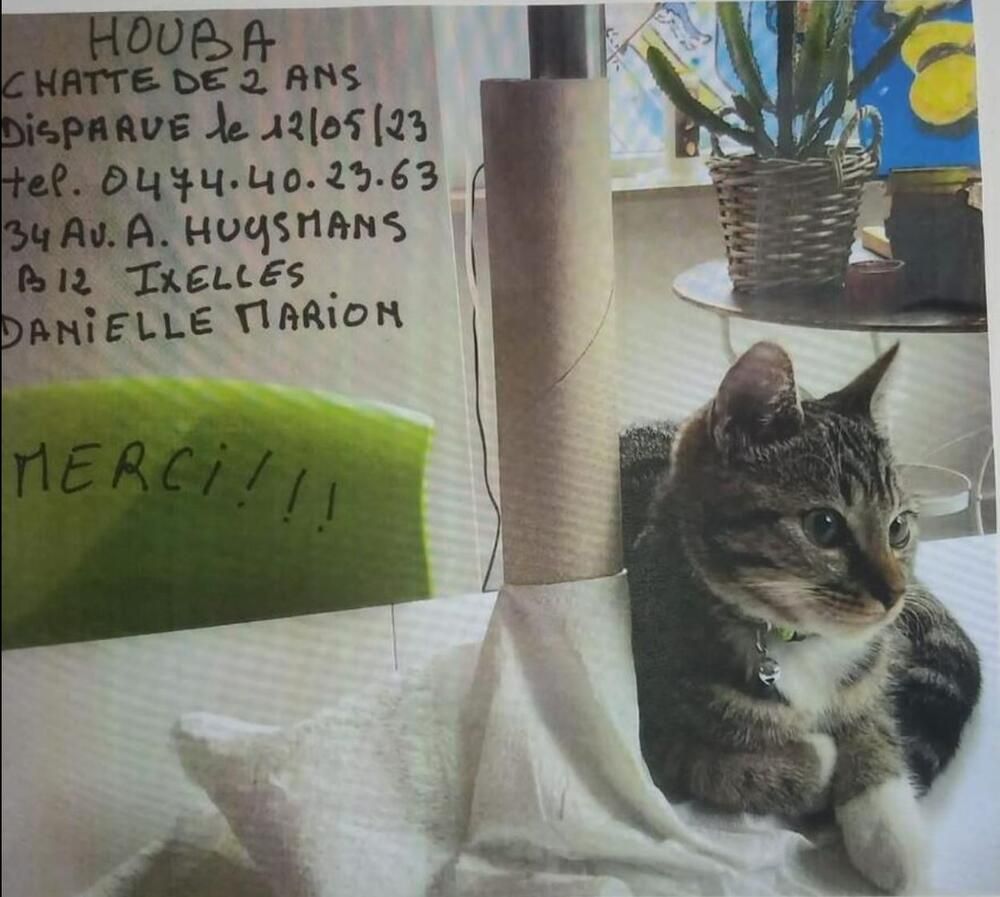 HOUBA
CHATTE DE 2 ANS
DiSPARUE le 12/05/23
tel. 0474.40.23.63
34 AV. A. HUYSMANS
B12 IXELLES
DANiELLE MARiON
MERCi!!!